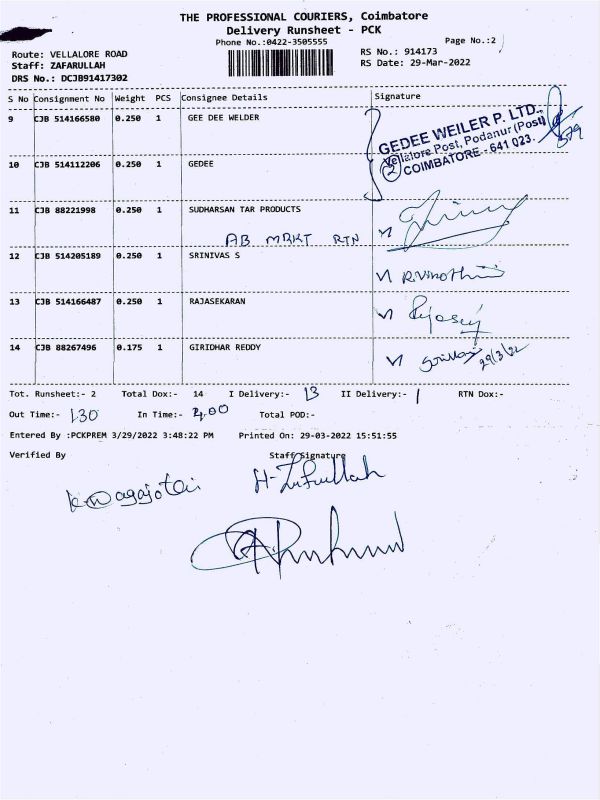 THE PROFESSIONAL COURIERS, Coimbatore
Delivery Runsheet - PCK
Phone No.:0422-3505555
Page No.:2
Route: VELLALORE ROAD
RS No.: 914173
Staff: ZAFARULLAH
RS Date: 29-Mar-2022
DRS No.: DCJB91417302
S No Consignment No Weight PCS Consignee Details Signature
9 CJB 514166580 0.250 1 GEE DEE WELDER
GEDEE WEILER P. LTD.,
Vellalore Post, Podanur (Post)
COIMBATORE - 641 023.
2
10 CJB 514112206 0.250 1 GEDEE
11 CJB 88221998 0.250 1 SUDHARSAN TAR PRODUCTS
AB MRKT RTN
12 CJB 514205189 0.250 1 SRINIVAS S
13 CJB 514166487 0.250 1 RAJASEKARAN
14 CJB 88267496 0.175 1 GIRIDHAR REDDY
29/3/22
Tot. Runsheet:- 2 Total Dox:- 14 I Delivery:- 13 II Delivery:- 1 RTN Dox:-
Out Time:- 1.30 In Time:- 4.00 Total POD:-
Entered By :PCKPREM 3/29/2022 3:48:22 PM Printed On: 29-03-2022 15:51:55
Verified By Staff Signature